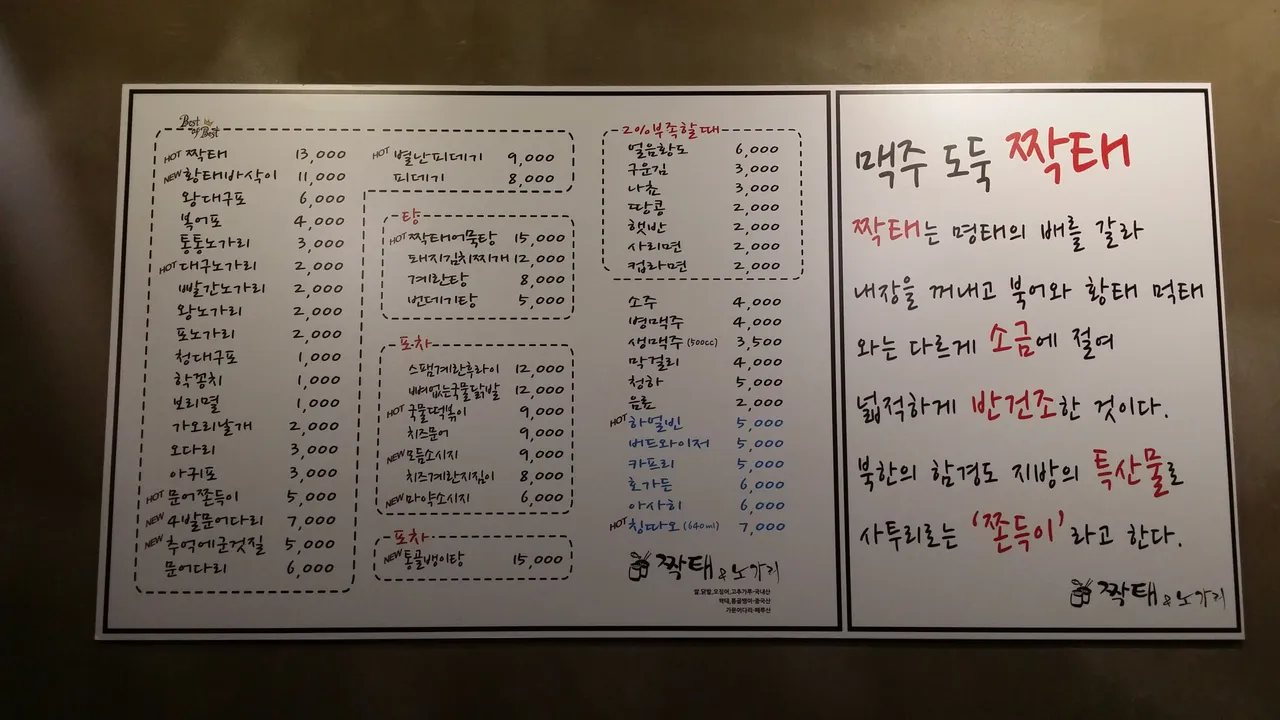 Best of Best
HOT 짝태 13,000
NEW 황태바삭이 11,000
왕대구포 6,000
복어포 4,000
통통노가리 3,000
HOT 대구노가리 2,000
빨간노가리 2,000
왕노가리 2,000
포노가리 2,000
청대구포 1,000
학꽁치 1,000
보리멸 1,000
가오리날개 2,000
오다리 3,000
아귀포 3,000
HOT 문어쫀득이 5,000
NEW 4발문어다리 7,000
NEW 추억에군것질 5,000
문어다리 6,000
HOT 별난피데기 9,000
피데기 8,000
탕
HOT 짝태어묵탕 15,000
돼지김치찌개 12,000
계란탕 8,000
번데기탕 5,000
포차
스팸계란후라이 12,000
뼈없는국물닭발 12,000
HOT 국물떡볶이 9,000
치즈문어 9,000
NEW 모듬소시지 9,000
치즈계란지짐이 8,000
NEW 마약소시지 6,000
포차
NEW 통골뱅이탕 15,000
2%부족할때
얼음황도 6,000
구운김 3,000
나쵸 3,000
땅콩 2,000
햇반 2,000
사리면 2,000
컵라면 2,000
소주 4,000
병맥주 4,000
생맥주 (500cc) 3,500
막걸리 4,000
청하 5,000
음료 2,000
HOT 하얼빈 5,000
버드와이저 5,000
카프리 5,000
호가든 6,000
아사히 6,000
HOT 칭따오 (640ml) 7,000
짝태 & 노가리
쌀,닭발,오징어,고추가루-국내산
먹태,통골뱅이-중국산
가문어다리-페루산
맥주 도둑 짝태
짝태는 명태의 배를 갈라
내장을 꺼내고 북어와 황태 먹태
와는 다르게 소금에 절여
넓적하게 반건조한 것이다.
북한의 함경도 지방의 특산물로
사투리로는 '쫀득이' 라고 한다.
짝태 & 노가리